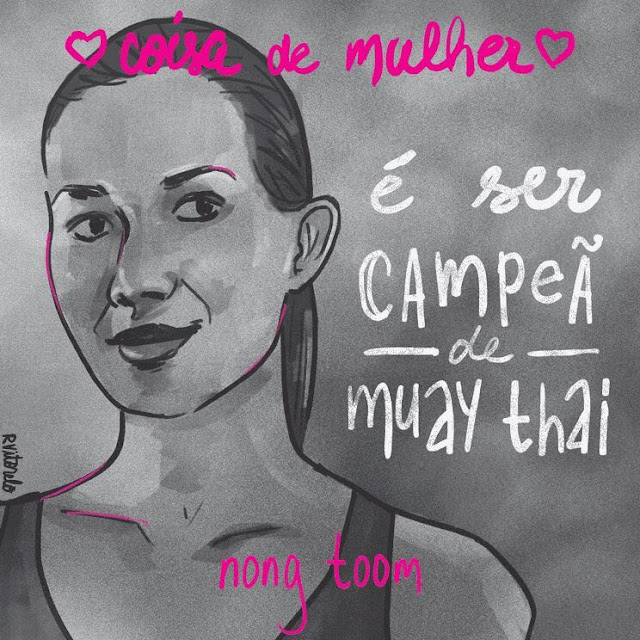 coisa de mulher
é ser
CAMPEÃ
de
muay thai
nong toom